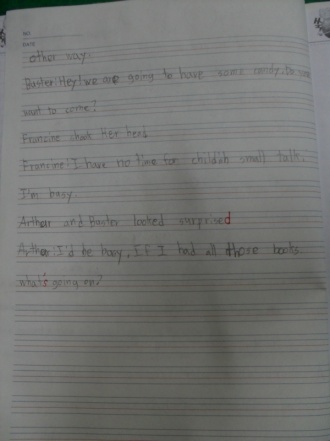 NO.
DATE
other say.
Baster! Hey! we are going to have some candy. Do you
want to come?
Francine shook Her head.
Francine! I have no time for childish small talk.
I'm busy.
Arthur and Buster looked surprised
Arthur I'd be busy, If I had all those books.
what's going on?